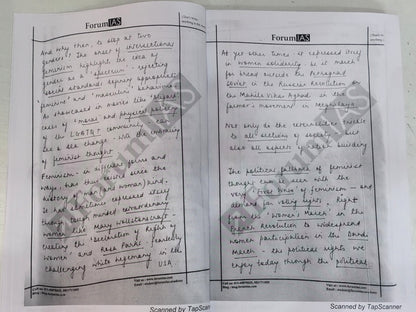 ForumIAS
And why then, to stop at two
genders? The onset of intersectional
feminism highlight the idea of
gender as a "spectrum", rejecting
social standards defining appropriate
"feminine" and "masculine" behaviour.
As showcased in movies like
cases of "moral" and physical policing
of the LGBTQI+ community can
see a sea change - with the
of feminist thought.
Feminism - in different forms and
ways, has thus existed since the
history of man (and woman) kind.
It sometimes expresses itself
through tough minded extraordinary
women like Mary Wollstonecraft -
creating the 'Declaration of Rights of
Woman' and Rosa Parks - fearlessly
challenging white hegemony in the
USA.
ForumIAS
At yet other times, it expressed itself
in women solidarity, be it march
for bread outside the Petrograd
Soviet in the Russian Revolution or
the Mahila Vikas Aghadi in the
farmer's movement in
Not only do the reverberations
to all sections of society but
also all aspects of nation building
The political fallouts of feminist
thought can be seen with the
very first wave of feminism - and
demand for voting rights. Right
from the 'Women's March' in the
French Revolution to widespread
women participation in the Dandi
March - the political rights we
enjoy today through the political
Scanned by TapScanner
Scanned by TapScanner